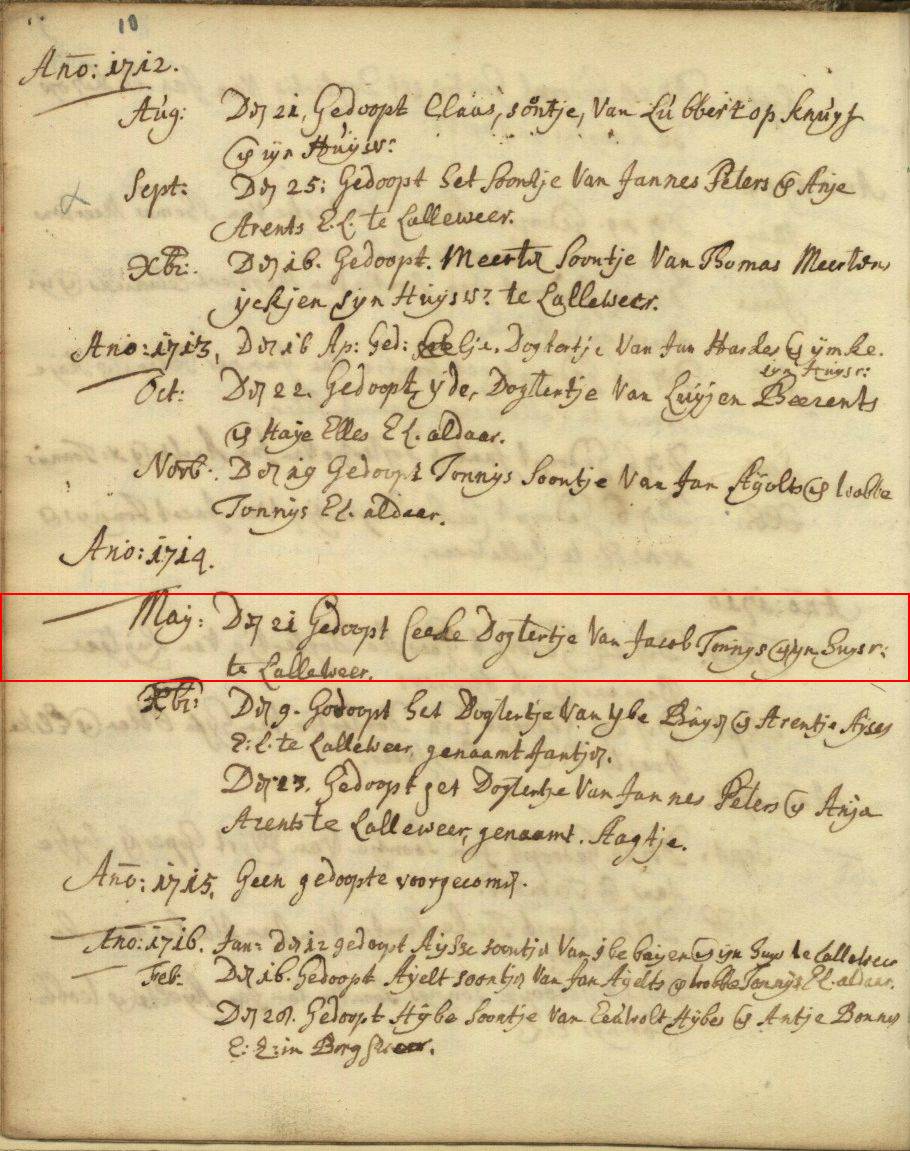 10
Año: 1712.
Aug: Den 21, Gedoopt Claas, sontje, Van Lubbert op Knuyf
@ syn Huysvr:
Sept: Den 25: Gedoopt het Soontje Van Jannes Peters @ Anje
Arents E.L. te Lalleweer.
Xbr: Den 16. Gedoopt. Meerten Soontje Van Thomas Meertens
yckjen syn Huysvr te Lalleweer.
Año: 1713, Den 16 Ap: Ged: Dogtertje Van Jan Hardes @ ymke.
syn Huysr:
Oct: Den 22. Gedoopt, yde, Dogtertje Van Luyjen Beerents
@ Haye Elles E L. aldaar.
Novb: Den 19 Gedoopt Tonnys Soontje Van Jan Ayolts @
Tonnys EL. aldaar.
Ano: 1714.
May: Den 21 Gedoopt Ceeke Dogtertje Van Jacob Tonnys @ syn Huysr:
te Lalleweer.
Xbr: Den 9. Gedoopt het Dogtertje Van Ybe Bayen @ Arentje Ayses
E: L. te Lalleweer, genaamt Jantjen.
Den 23. Gedoopt het Dogtertje Van Jannes Peters @ Anja
Arents te Lalleweer, genaamt. Aagtje.
Año: 1715, Geen gedoopte voorgecomen.
Año: 1716. Jan: Den 12 gedoopt Aysse soontje Van ibe bayen @ syn huys te Lalleweer
Feb: Den 16. Gedoopt Ayelt soontjen Van Jan Ayelts @ Tonnys EL. aldaar.
Den 20. Gedoopt Hybe Soontje Van Eeuwolt Hybes @ Antje Bonnes
E: L: in Borgsweer.